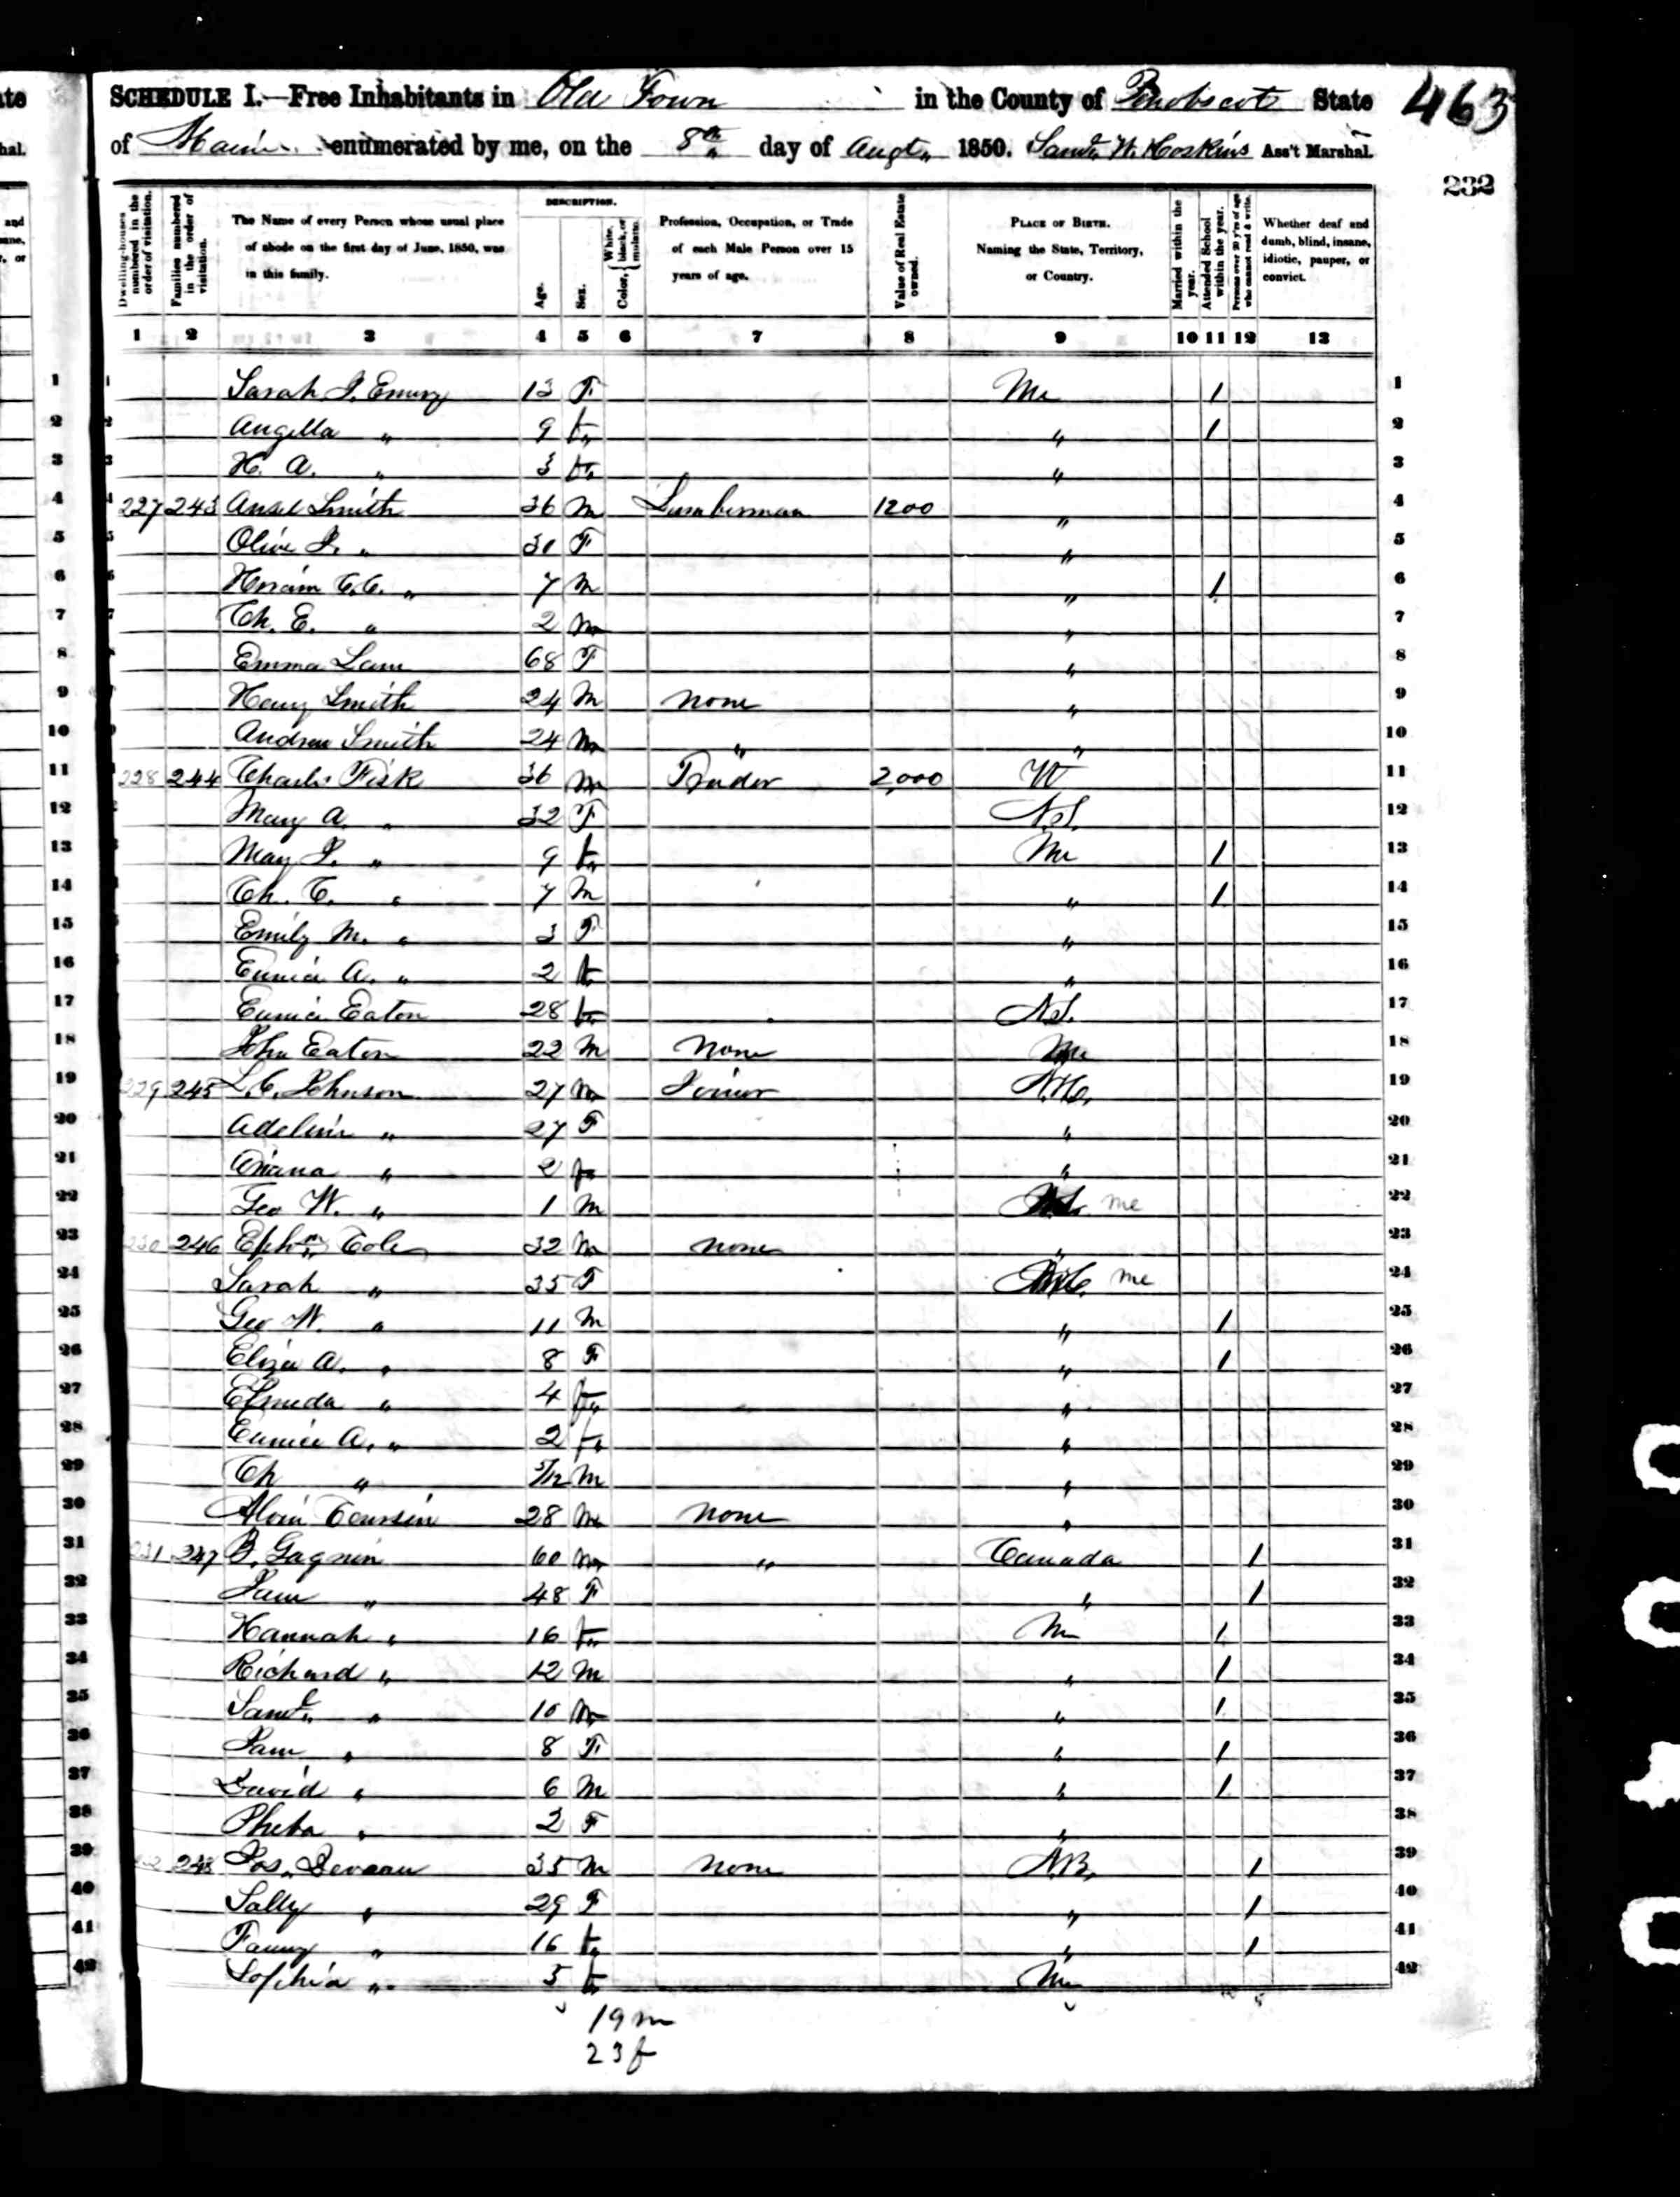 SCHEDULE I.—Free Inhabitants in Old Town in the County of Penobscot State 463
of Maine enumerated by me, on the 8th day of Augt 1850. Saml. W. Hoskins Ass't Marshal.
232
Dwelling-houses numbered in the order of visitation. Families numbered in the order of visitation. The Name of every Person whose usual place of abode on the first day of June, 1850, was in this family. DESCRIPTION. Age. Sex. Color, White, black, or mulatto. Profession, Occupation, or Trade of each Male Person over 15 years of age. Value of Real Estate owned. PLACE OF BIRTH. Naming the State, Territory, or Country. Married within the year. Attended School within the year. Persons over 20 y'rs of age who cannot read & write. Whether deaf and dumb, blind, insane, idiotic, pauper, or convict.
1 2 3 4 5 6 7 8 9 10 11 12 13
1 Sarah J. Emery 13 F Me 1 1
2 Angella " 9 F" " 1 2
3 H. A. " 3 F" " 3
4 227 243 Ansel Smith 36 M Lumberman 1200 " 4
5 Olive J. " 31 F " 5
6 Hiram C.C. " 7 M " 1 6
7 Ch. E. " 2 M " 7
8 Emma 68 F " 8
9 Henry Smith 24 M none " 9
10 Andrew Smith 24 M " " 10
11 228 244 Charles Fisk 36 M Trader 2,000 Vt 11
12 Mary A. " 32 F N.S. 12
13 Mary J. " 9 F" Me 1 13
14 Ch. C. " 7 M " 1 14
15 Emily M. " 3 F " 15
16 Eunice A. " 2 F " 16
17 Eunice Eaton 28 F" N.S. 17
18 John Eaton 22 M None Me 18
19 229 245 L. C. Johnson 27 M Joiner N.H. 19
20 Adeline " 27 F " 20
21 Ariana " 2 F " 21
22 Geo W. " 1 M me 22
23 230 246 Ephm Cole 32 M none " 23
24 Sarah " 35 F me 24
25 Geo W. " 11 M " 1 25
26 Eliza A. " 8 F " 1 26
27 " 4 F" " 27
28 Eunice A. " 2 F" " 28
29 Ch " /12 M " 29
30 28 M none " 30
31 231 247 B. Gagnin 60 M " Canada 1 31
32 Jane " 48 F " 1 32
33 Hannah " 16 F" Me 1 33
34 Richard " 12 M " 1 34
35 Saml " 10 M " 1 35
36 Jane " 8 F " 1 36
37 David " 6 M " 1 37
38 Pheba " 2 F " 38
39 248 Jos. 35 M none N.B. 1 39
40 Sally " 29 F " 1 40
41 Fanny " 16 F " 1 41
42 Sophia " 5 F Me 42
19 m
23 f